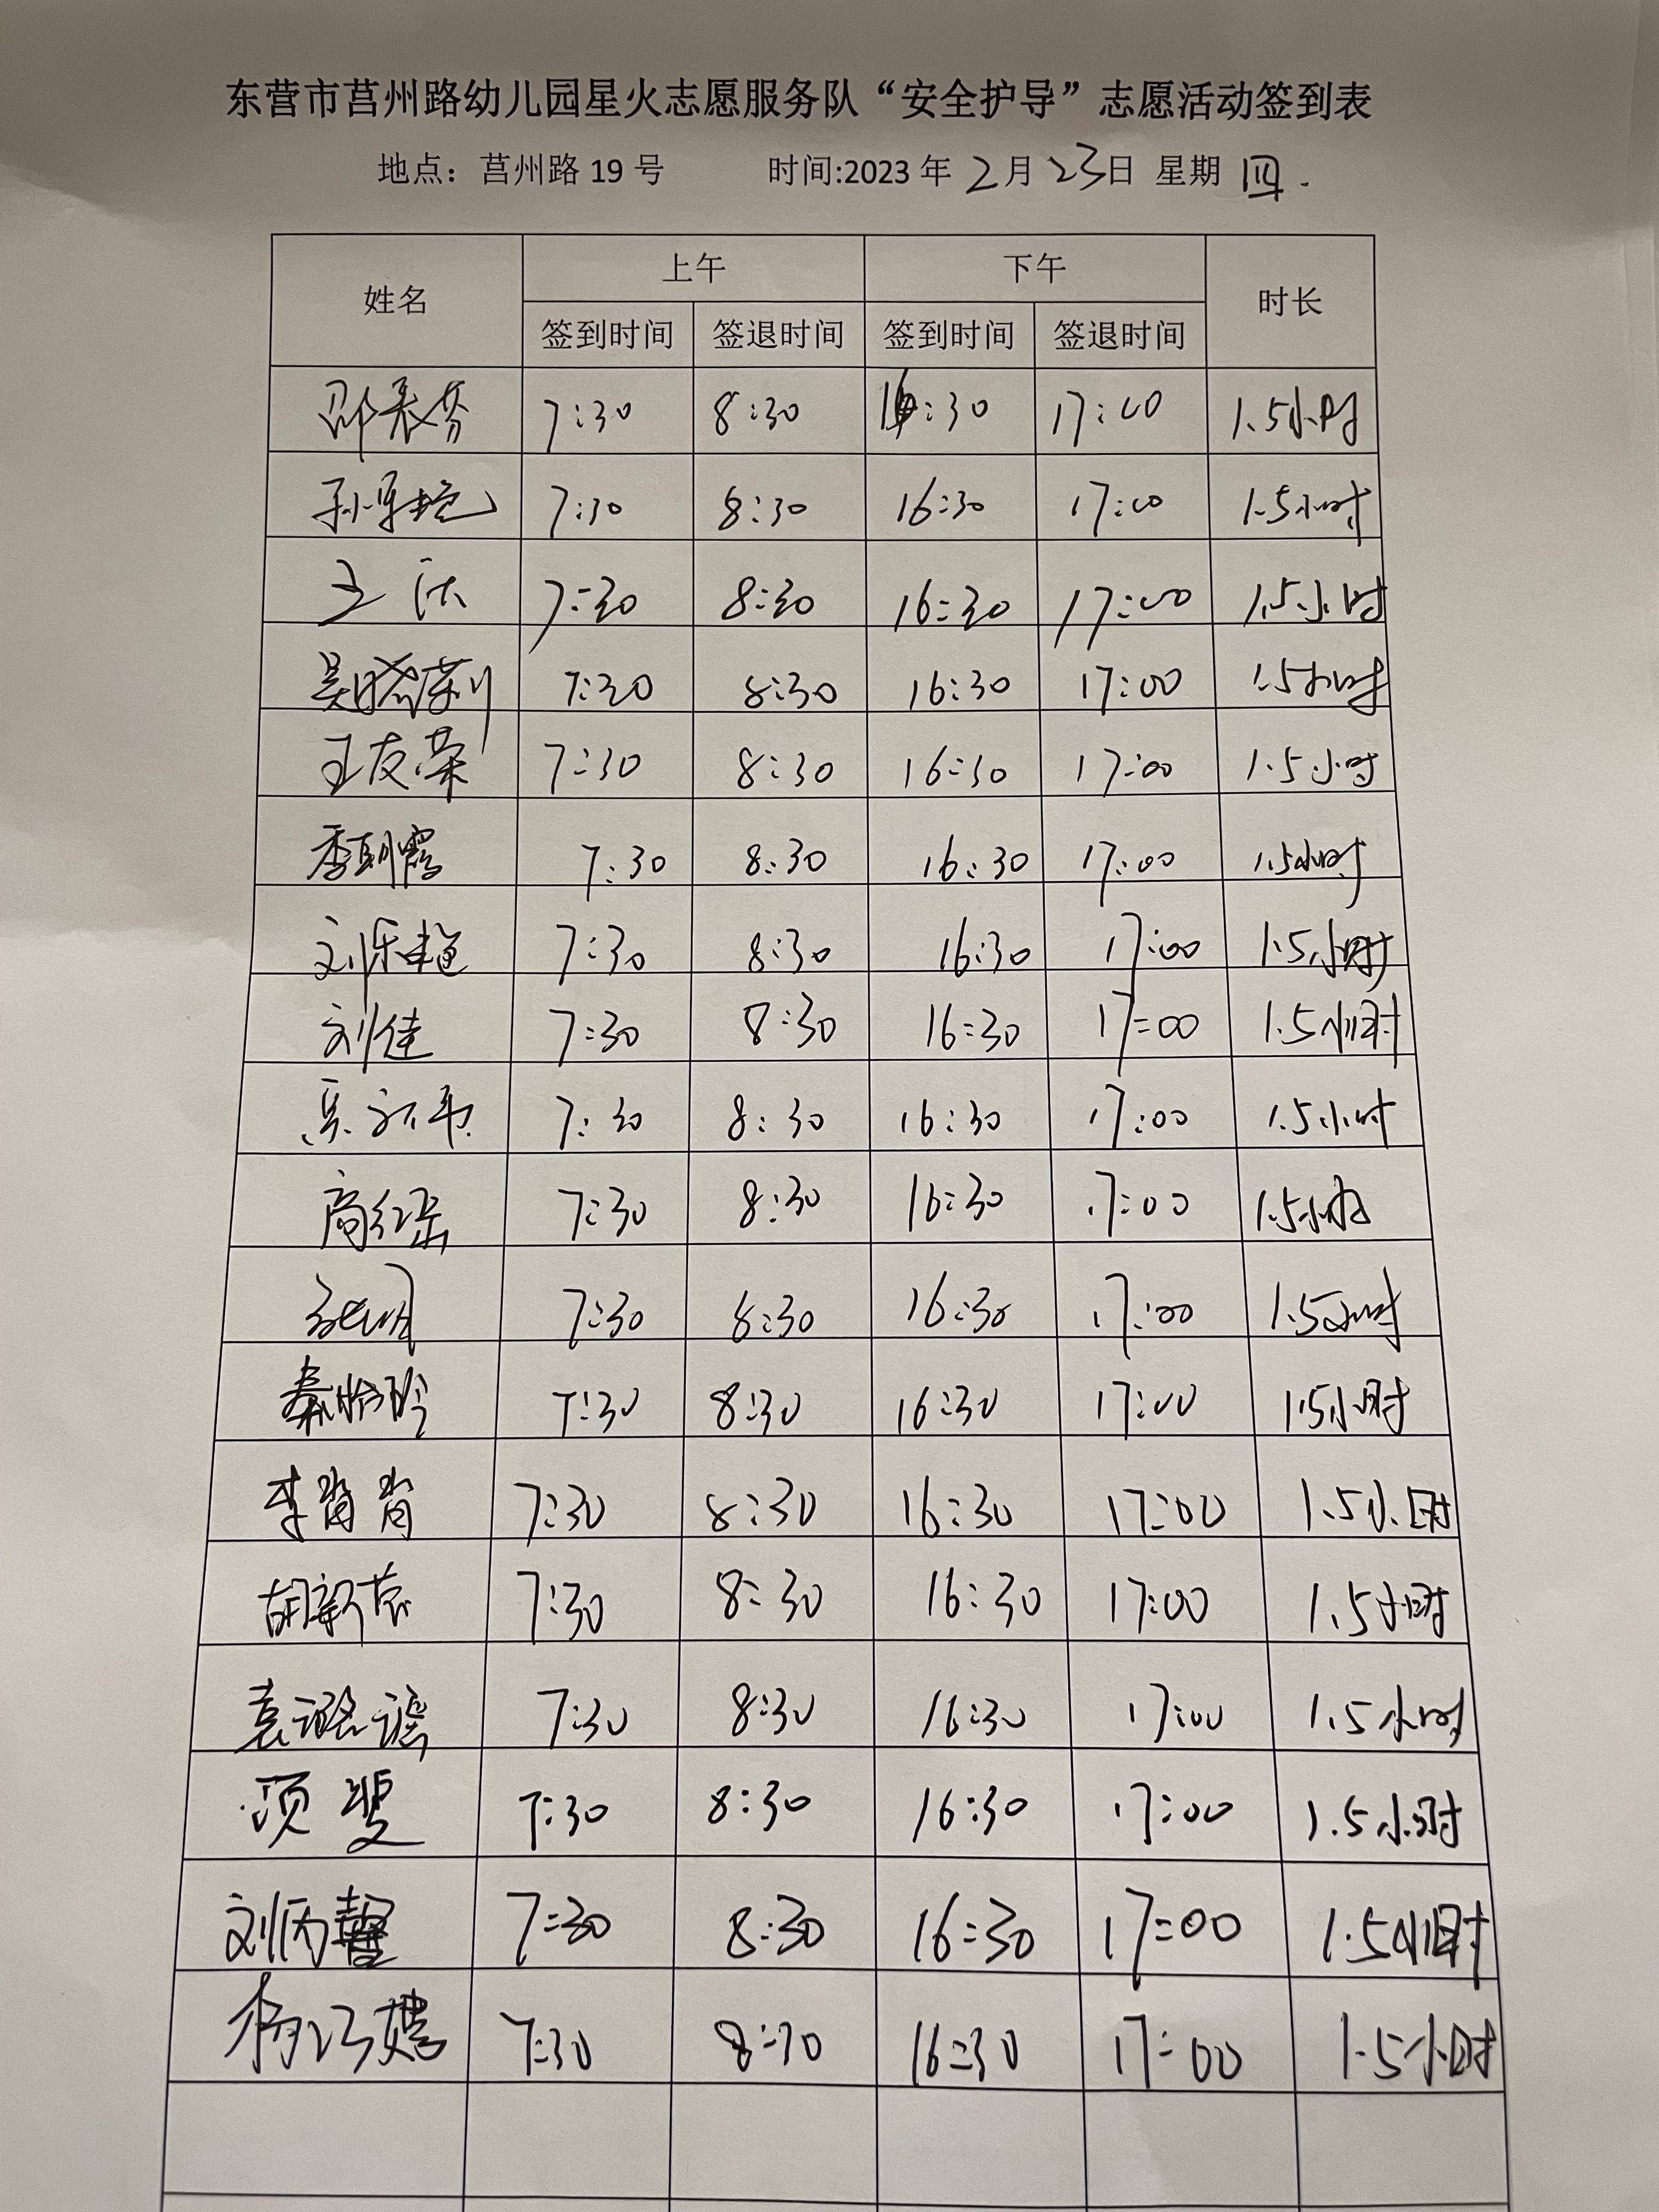 东营市莒州路幼儿园星火志愿服务队“安全护导”志愿活动签到表
地点：莒州路 19 号 时间:2023 年 2 月 23 日 星期 四.
姓名 上午 下午 时长
签到时间 签退时间 签到时间 签退时间
7:30 8:30 16:30 17:00 1.5小时
7:30 8:30 16:30 17:00 1.5小时
7:30 8:30 16:30 17:00 1.5小时
吴晓莉 7:30 8:30 16:30 17:00 1.5小时
王友荣 7:30 8:30 16:30 17:00 1.5小时
7:30 8:30 16:30 17:00 1.5小时
7:30 8:30 16:30 17:00 1.5小时
刘佳 7:30 8:30 16:30 17:00 1.5小时
7:30 8:30 16:30 17:00 1.5小时
7:30 8:30 16:30 17:00 1.5小时
7:30 8:30 16:30 17:00 1.5小时
秦怡玲 7:30 8:30 16:30 17:00 1.5小时
李肖肖 7:30 8:30 16:30 17:00 1.5小时
7:30 8:30 16:30 17:00 1.5小时
7:30 8:30 16:30 17:00 1.5小时
项斐 7:30 8:30 16:30 17:00 1.5小时
刘丙馨 7:30 8:30 16:30 17:00 1.5小时
7:30 8:30 16:30 17:00 1.5小时